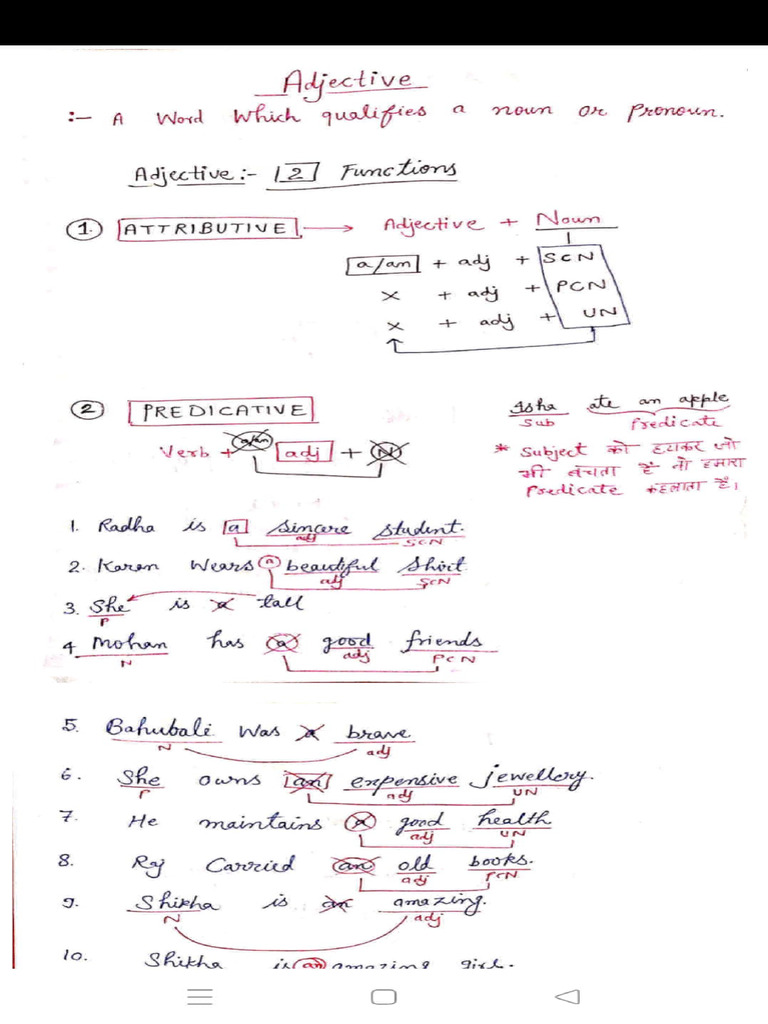 Adjective
:- A Word Which qualifies a noun or Pronoun.
Adjective:- 2 Functions
1. ATTRIBUTIVE → Adjective + Noun
a/an + adj + SCN
x + adj + PCN
x + adj + UN
2 PREDICATIVE
Verb + a/an adj + N
Isha ate an apple
Sub Predicate
* Subject को हटाकर जो
भी बचता हैं तो हमारा
Predicate कहलाता हैं।
1. Radha is a sincare student.
adj SCN
2. Karan Wears a beautiful Shirt
adj SCN
3. She is a tall
P
4 Mohan has a good friends
N adj PCN
5. Bahubali was a brave
N adj
6. She owns an expensive jewellery.
P adj UN
7. He maintains a good health
adj UN
8. Raj Carried an old books.
adj PCN
9. Shikha is an amazing.
N adj
10. Shikha is an amazing girl.